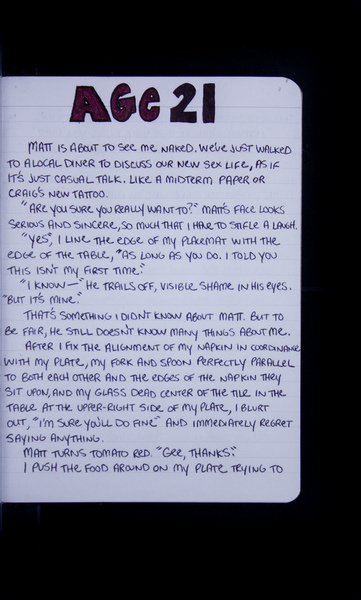 AGE 21
MATT IS ABOUT TO SEE ME NAKED. WE'VE JUST WALKED
TO A LOCAL DINER TO DISCUSS OUR NEW SEX LIFE, AS IF
IT'S JUST CASUAL TALK. LIKE A MIDTERM PAPER OR
CRAIG'S NEW TATTOO.
"ARE YOU SURE YOU REALLY WANT TO?" MATT'S FACE LOOKS
SERIOUS AND SINCERE, SO MUCH THAT I HAVE TO STIFLE A LAUGH.
"YES", I LINE THE EDGE OF MY PLACEMAT WITH THE
EDGE OF THE TABLE, "AS LONG AS YOU DO. I TOLD YOU
THIS ISN'T MY FIRST TIME."
"I KNOW—" HE TRAILS OFF, VISIBLE SHAME IN HIS EYES.
"BUT IT'S MINE."
THAT'S SOMETHING I DIDN'T KNOW ABOUT MATT. BUT TO
BE FAIR, HE STILL DOESN'T KNOW MANY THINGS ABOUT ME.
AFTER I FIX THE ALIGNMENT OF MY NAPKIN IN COORDINANCE
WITH MY PLATE, MY FORK AND SPOON PERFECTLY PARALLEL
TO BOTH EACH OTHER AND THE EDGES OF THE NAPKIN THEY
SIT UPON, AND MY GLASS DEAD CENTER OF THE TILE IN THE
TABLE AT THE UPPER-RIGHT SIDE OF MY PLATE, I BLURT
OUT, "I'M SURE YOU'LL DO FINE" AND IMMEDIATELY REGRET
SAYING ANYTHING.
MATT TURNS TOMATO RED. "GEE, THANKS."
I PUSH THE FOOD AROUND ON MY PLATE TRYING TO